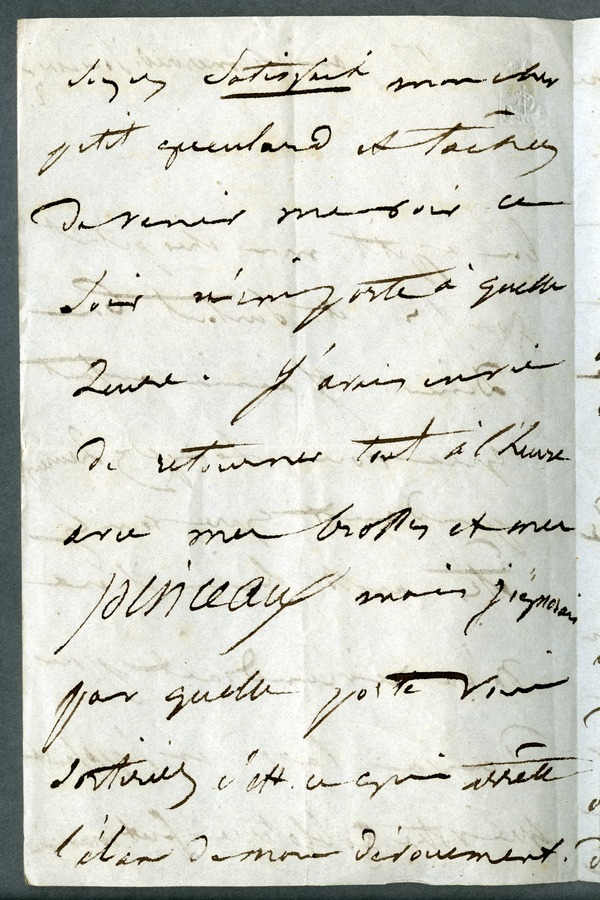 Soyez satisfait mon cher
petit gueulard et tachez
de venir me voir ce
soir n'importe à quelle
heure. J'avais envie
de retourner tout à l'heure
avec mes brosses et mes
pinceaux mais j'ignorais
par quelle porte vous
sortiriez c'est ce qui arrête
l'élan de mon dévouement.